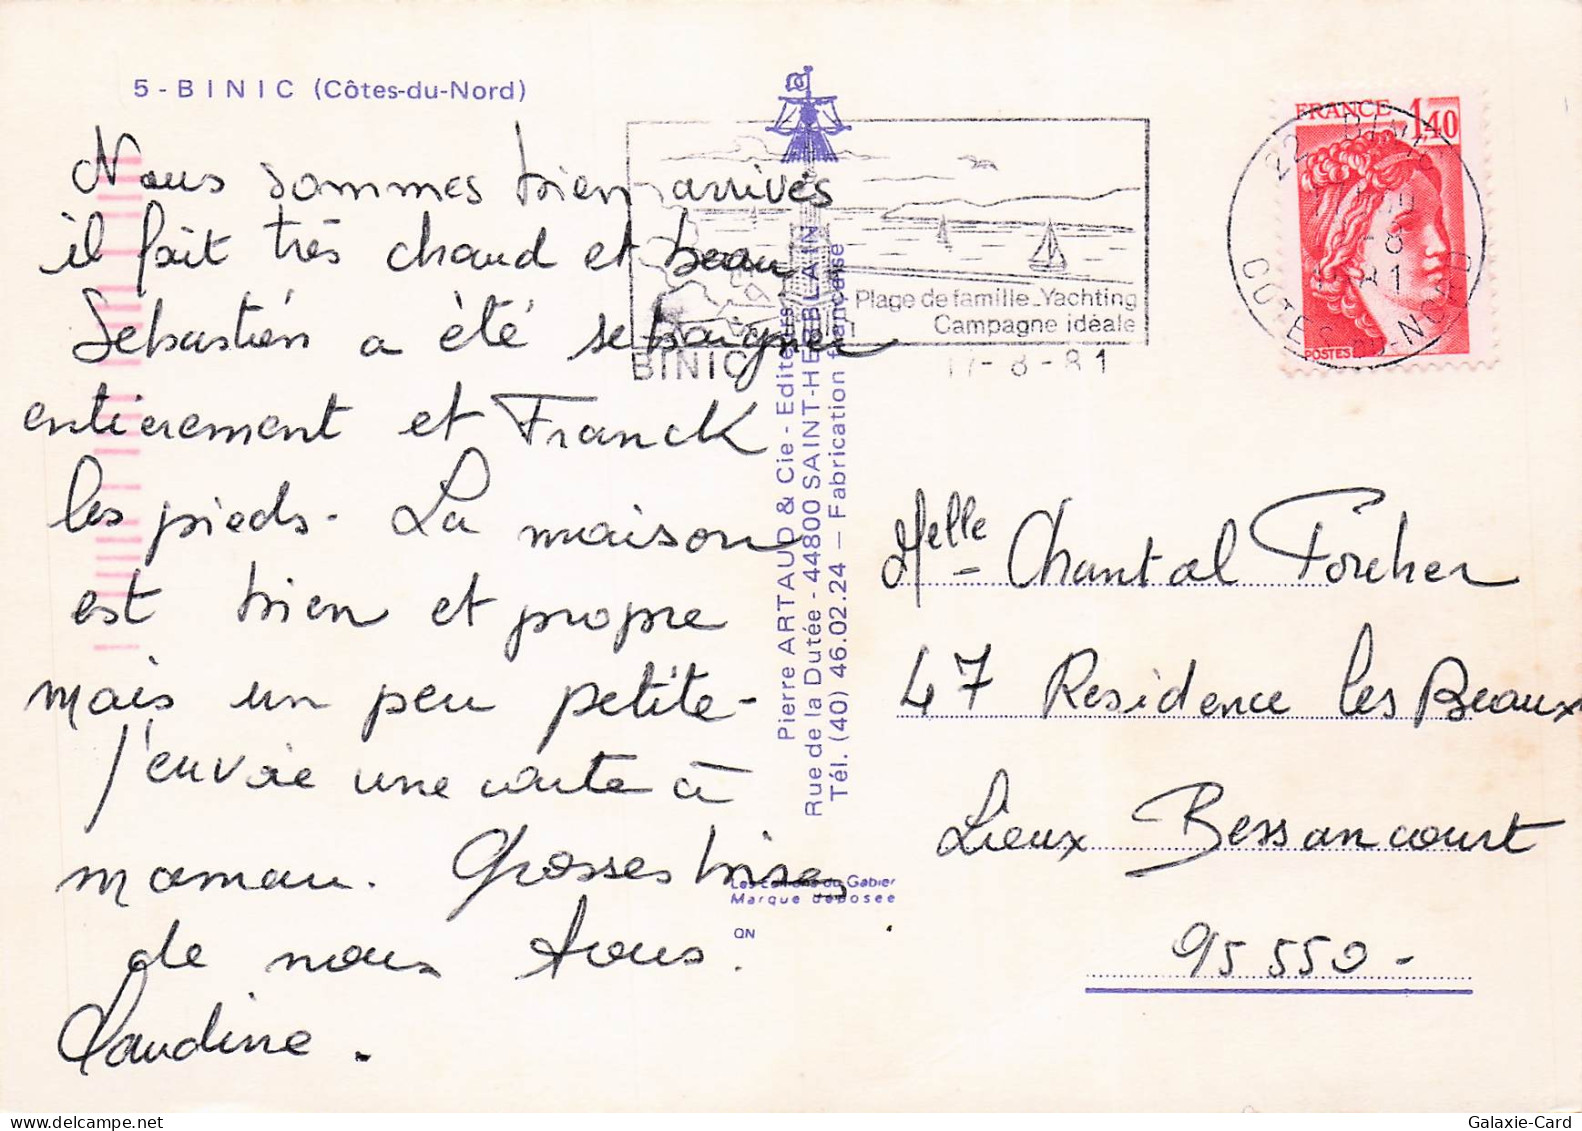 5 - BINIC (Côtes-du-Nord)
Nous sommes bien arrivés
il fait très chaud et beau
Sebastien a été se baigner
entierement et Franck
les pieds. La maison
est bien et propre
mais un peu petite -
J'envoie une carte à
maman. Grosses bises
de nous tous.
Claudine.
Plage de famille_Yachting
Campagne idéale
BINIC
17-8-81
FRANCE 1,40
POSTES
22
-8
81
COTES-DU-NORD
Pierre ARTAUD & Cie - Editeurs
Rue de la Dutée - 44800 SAINT-HERBLAIN
Tél. (40) 46.02.24 — Fabrication française
Les Editions du Gabier
Marque déposée
QN
Melle Chantal
47 Residence les Beaux
Lieux Bessancourt
95550 -
Galaxie-Card